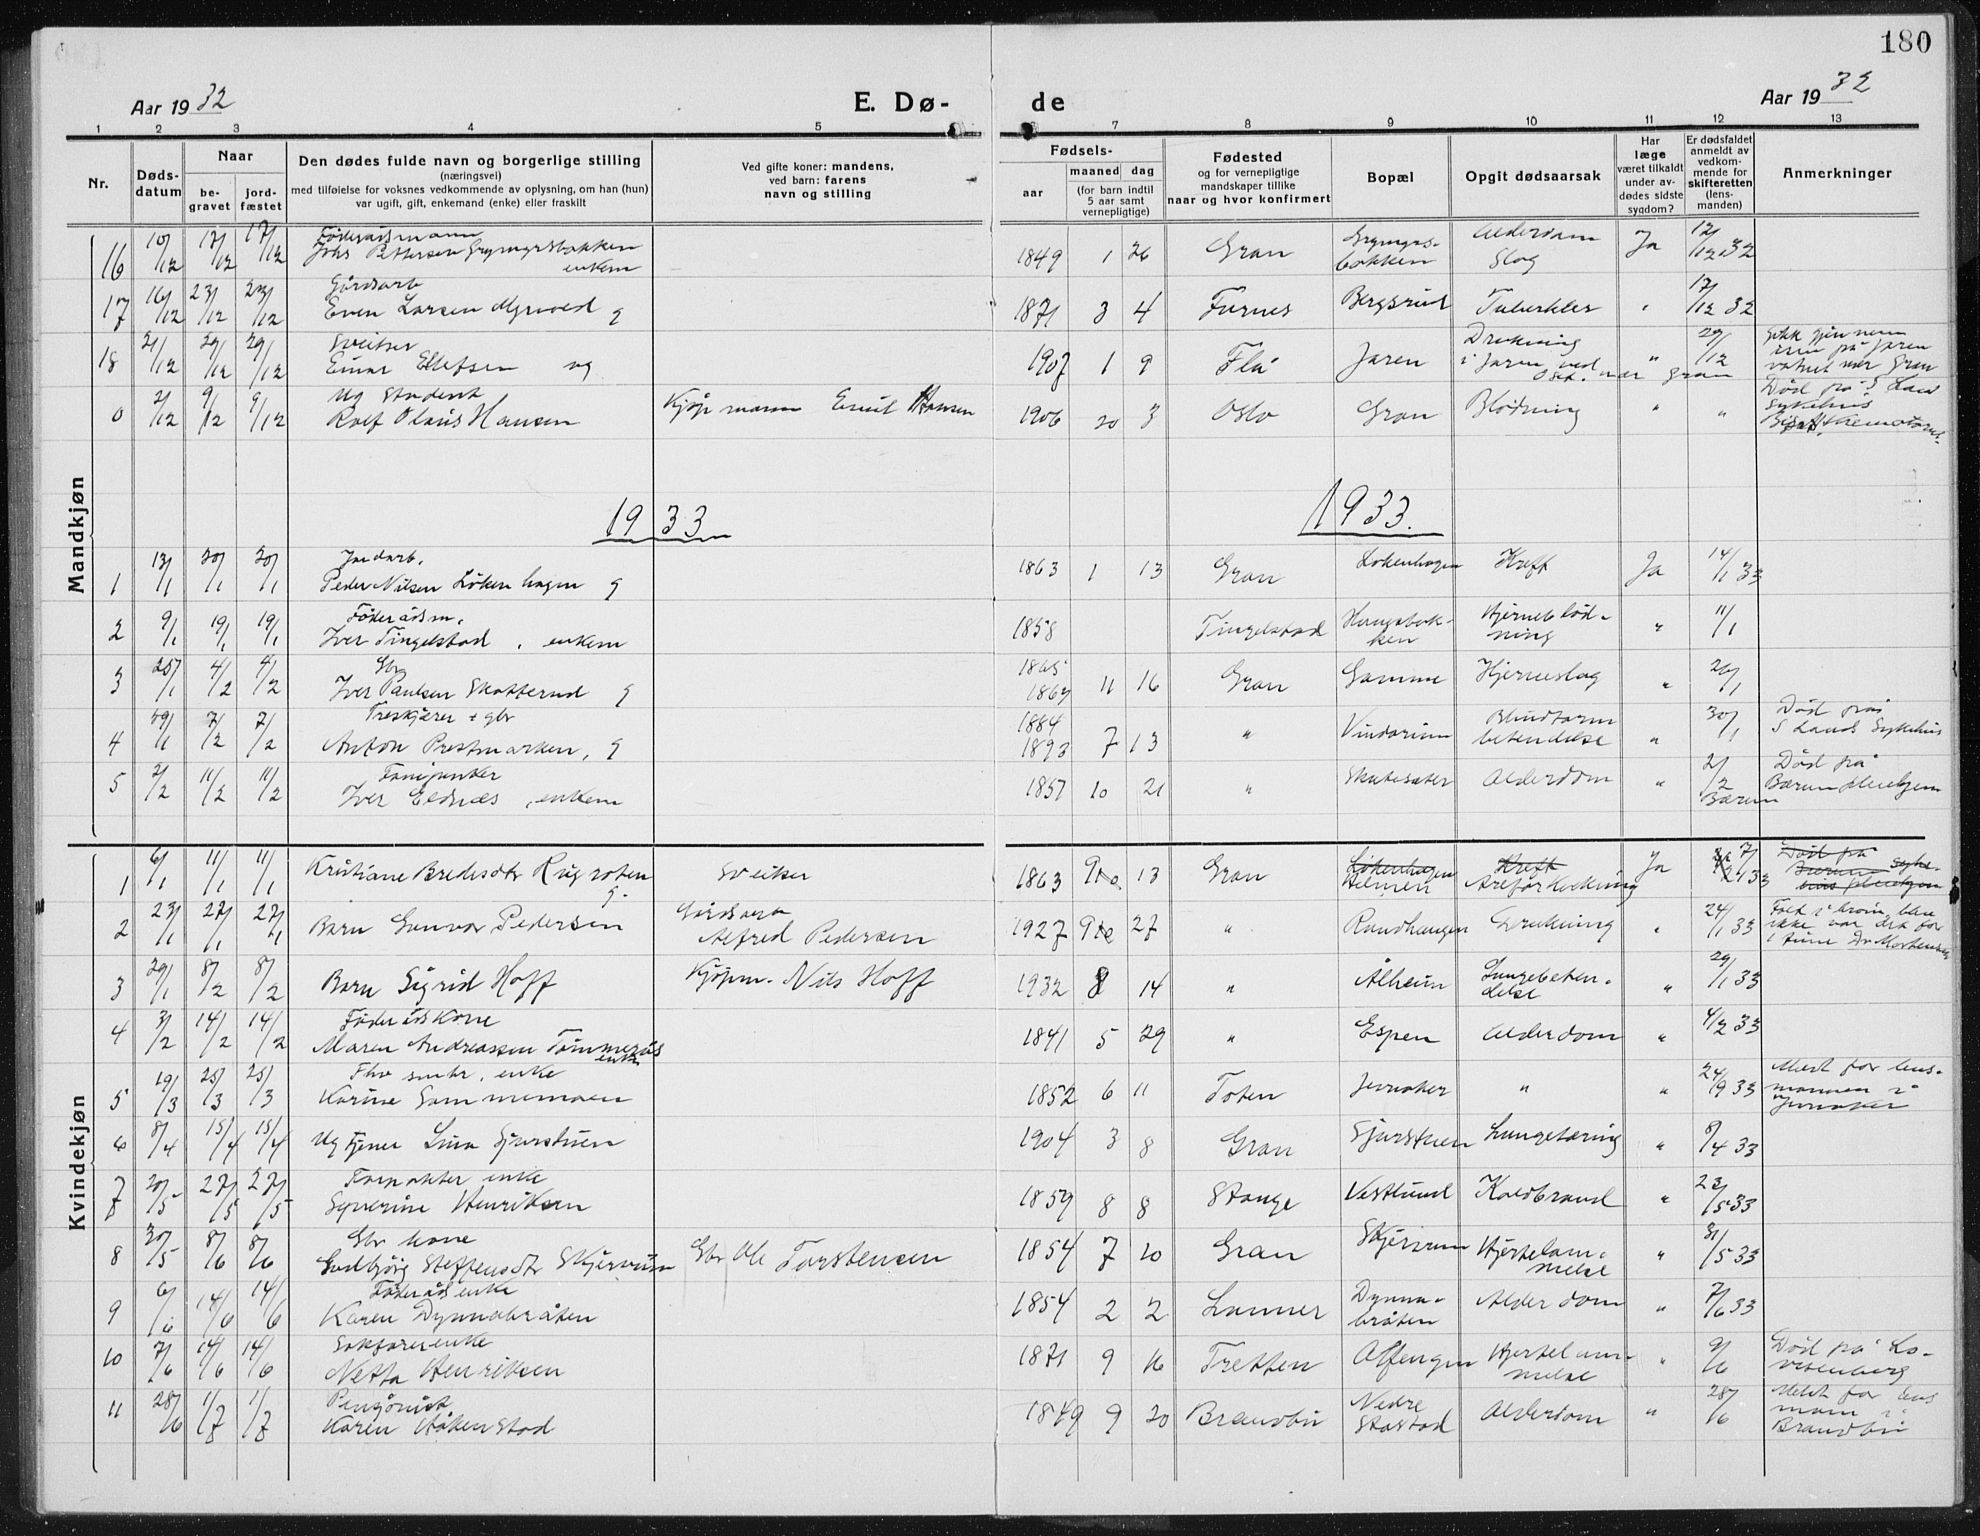 180
Aar 1932 E. Dø- de Aar 1932
1 2 3 4 5 6 7 8 9 10 11 12 13
Nr.
Døds-
datum
Naar
be-
gravet
jord-
fæstet
Den dødes fulde navn og borgerlige stilling
(næringsvei)
med tilføielse for voksnes vedkommende av oplysning, om han (hun)
var ugift, gift, enkemand (enke) eller fraskilt
Ved gifte koner: mandens,
ved barn: farens
navn og stilling
Fødsels-
aar
maaned dag
(for barn indtil
5 aar samt
vernepligtige)
Fødested
og for vernepligtige
mandskaper tillike
naar og hvor konfirmert
Bopæl
Opgit dødsaarsak
Har
læge
været tilkaldt
under av-
dødes sidste
sygdom?
Er dødsfaldet
anmeldt av
vedkom-
mende for
skifteretten
(lens-
manden)
Anmerkninger
Mandkjøn
Føderådsmann
16 10/12 17/12 17/12 Johs Pettersen enkem 1849 1 26 Gran Alderdom Slag Ja 12/12 32
Gårdsarb
17 16/12 23/12 23/12 Even Larsen Myrvold g 1871 3 4 Furnes Bergsrud Tuberkler " 17/12 32
Sveitser
18 21/12 29/12 29/12 Einar Ellefsen ug 1907 1 9 Flå Jaren Drukning i Jaren ved Oset nær Gran " 29/12
Gikk gjennem isen på Jaren vatnet nær Gran
Ug Student
0 2/12 9/12 9/12 Rolf Olaus Hansen Kjøpmann Emil Hansen 1906 20 3 Oslo Gran Blødning " "
Død på S Land Sykehus
1933 1933.
Jordarb.
1 13/1 20/1 20/1 Peder Nilsen Løkenhagen g 1863 1 13 Gran Løkenhagen Kreft Ja 14/1 33
Føderådsm.
2 9/1 19/1 19/1 Iver Tingelstad, enkem 1858 Tingelstad Haugsbakken Hjerneblødning " 11/1
Gbr
3 25/1 4/2 4/2 Iver Paulsen Skatterud g 1865 1869 11 16 Gran Gamme Hjerneslag " 26/1
Treskjærer + gbr
4 29/1 7/2 7/2 Anton Prestmarken, g 1884 1893 7 13 " Vindorum Blindtarm betendelse " 30/1
Død på S Lands Sykehus
5 2/2 11/2 11/2 Iver Eldnæs, enkem 1857 10 21 " Skutesæter Alderdom " 2/2 Bærum
Død på Bærum pleiehjem
Kvindekjøn
1 6/1 11/1 11/1 Kristiane Bredesdtr Rugroten g. Sveitser 1863 9 13 Gran Løkenhagen Helmen Kreft Areforkalkning Ja 7/1 33
Død på Bærum pleiehjem
Gårdsarb
2 23/1 27/1 27/1 Barn Gunvor Pedersen Alfred Pedersen 1927 9 27 " Randhaugen Drukning " 24/1 33
3 29/1 8/2 8/2 Barn Sigrid Hoff Kjøpm. Nils Hoff 1932 8 14 " Ålheim Lungebetendelse " 29/1 33
Føderådskone
4 3/2 14/2 14/2 Maren Andreassen Tømmerås enke 1841 5 29 " Espen Alderdom " 4/2 33
Fhv smbr. enke
5 19/3 25/3 25/3 Karine Gammemoen 1852 6 11 Toten Jevnaker " " 24/9 33
Meldt for lensmannen i Jevnaker
6 8/4 15/4 15/4 Ug tjener Lina Gjurstuen 1904 3 8 Gran Gjurstuen Lungetæring " 8/4 33
Forpakter enke
7 20/5 27/5 27/5 Syverine Henriksen 1859 8 8 Stange Vestlund Koldbrand " 23/5 33
Gbr kone
8 30/5 8/6 8/6 Gudbjørg Steffensdtr Skjervum Gbr Ole Torstensen 1854 7 20 Gran Skjervum Hjertelammelse " 31/5 33
Føderåds enke
9 6/6 14/6 14/6 Karen Dynnabråten 1854 2 2 Lunner Dynnabråten Alderdom " 7/6 33
Sakførerenke
10 7/6 14/6 14/6 Netta Henriksen 1871 9 16 Tretten Alfengen Hjertelammelse " 9/6
Død på Lovisenberg
Pensjonist
11 28/6 1/7 1/7 Karen Håkenstad 1849 9 20 Brandbu Nedre Stastad Alderdom " 28/6
Meldt for lensmann i Brandbu